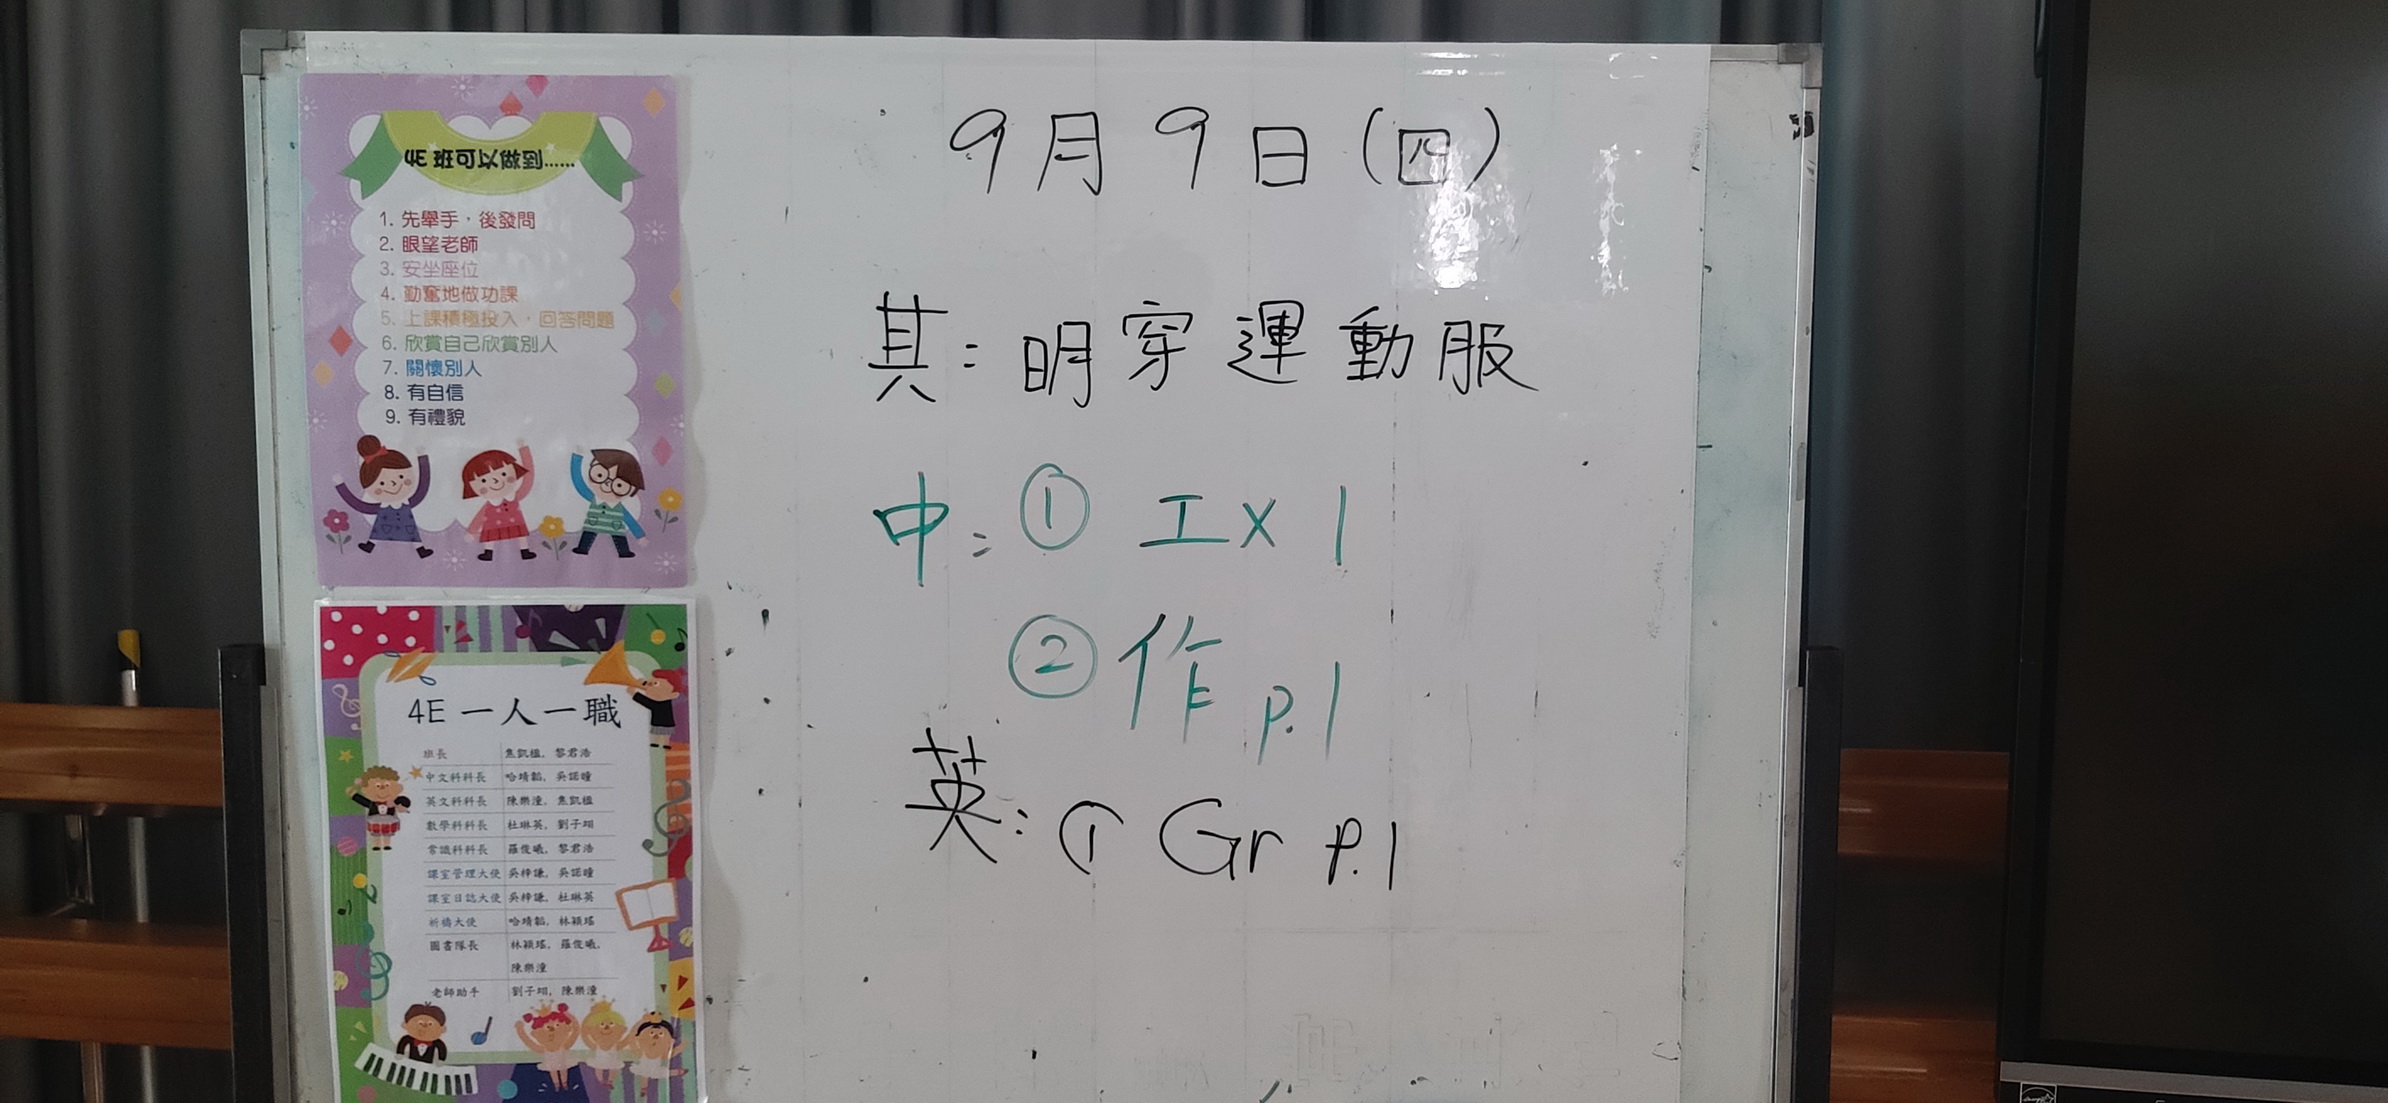 4E 班可以做到......
1. 先舉手，後發問
2. 眼望老師
3. 安坐座位
4. 勤奮地做功課
5. 上課積極投入，回答問題
6. 欣賞自己欣賞別人
7. 關懷別人
8. 有自信
9. 有禮貌
4E 一人一職
班長 焦凱榲，黎君浩
中文科科長 哈靖韜，吳諾曈
英文科科長 陳樂潼，焦凱榲
數學科科長 杜琳英，劉子珝
常識科科長 羅俊曦，黎君浩
課室管理大使 吳梓謙，吳諾曈
課室日誌大使 吳梓謙，杜琳英
祈禱大使 哈靖韜，林穎瑤
圖書隊長 林穎瑤，羅俊曦，
陳樂潼
老師助手 劉子珝，陳樂潼
9月9日(四)
其：明穿運動服
中：① 工x1
② 作 p.1
英：① Gr P.1